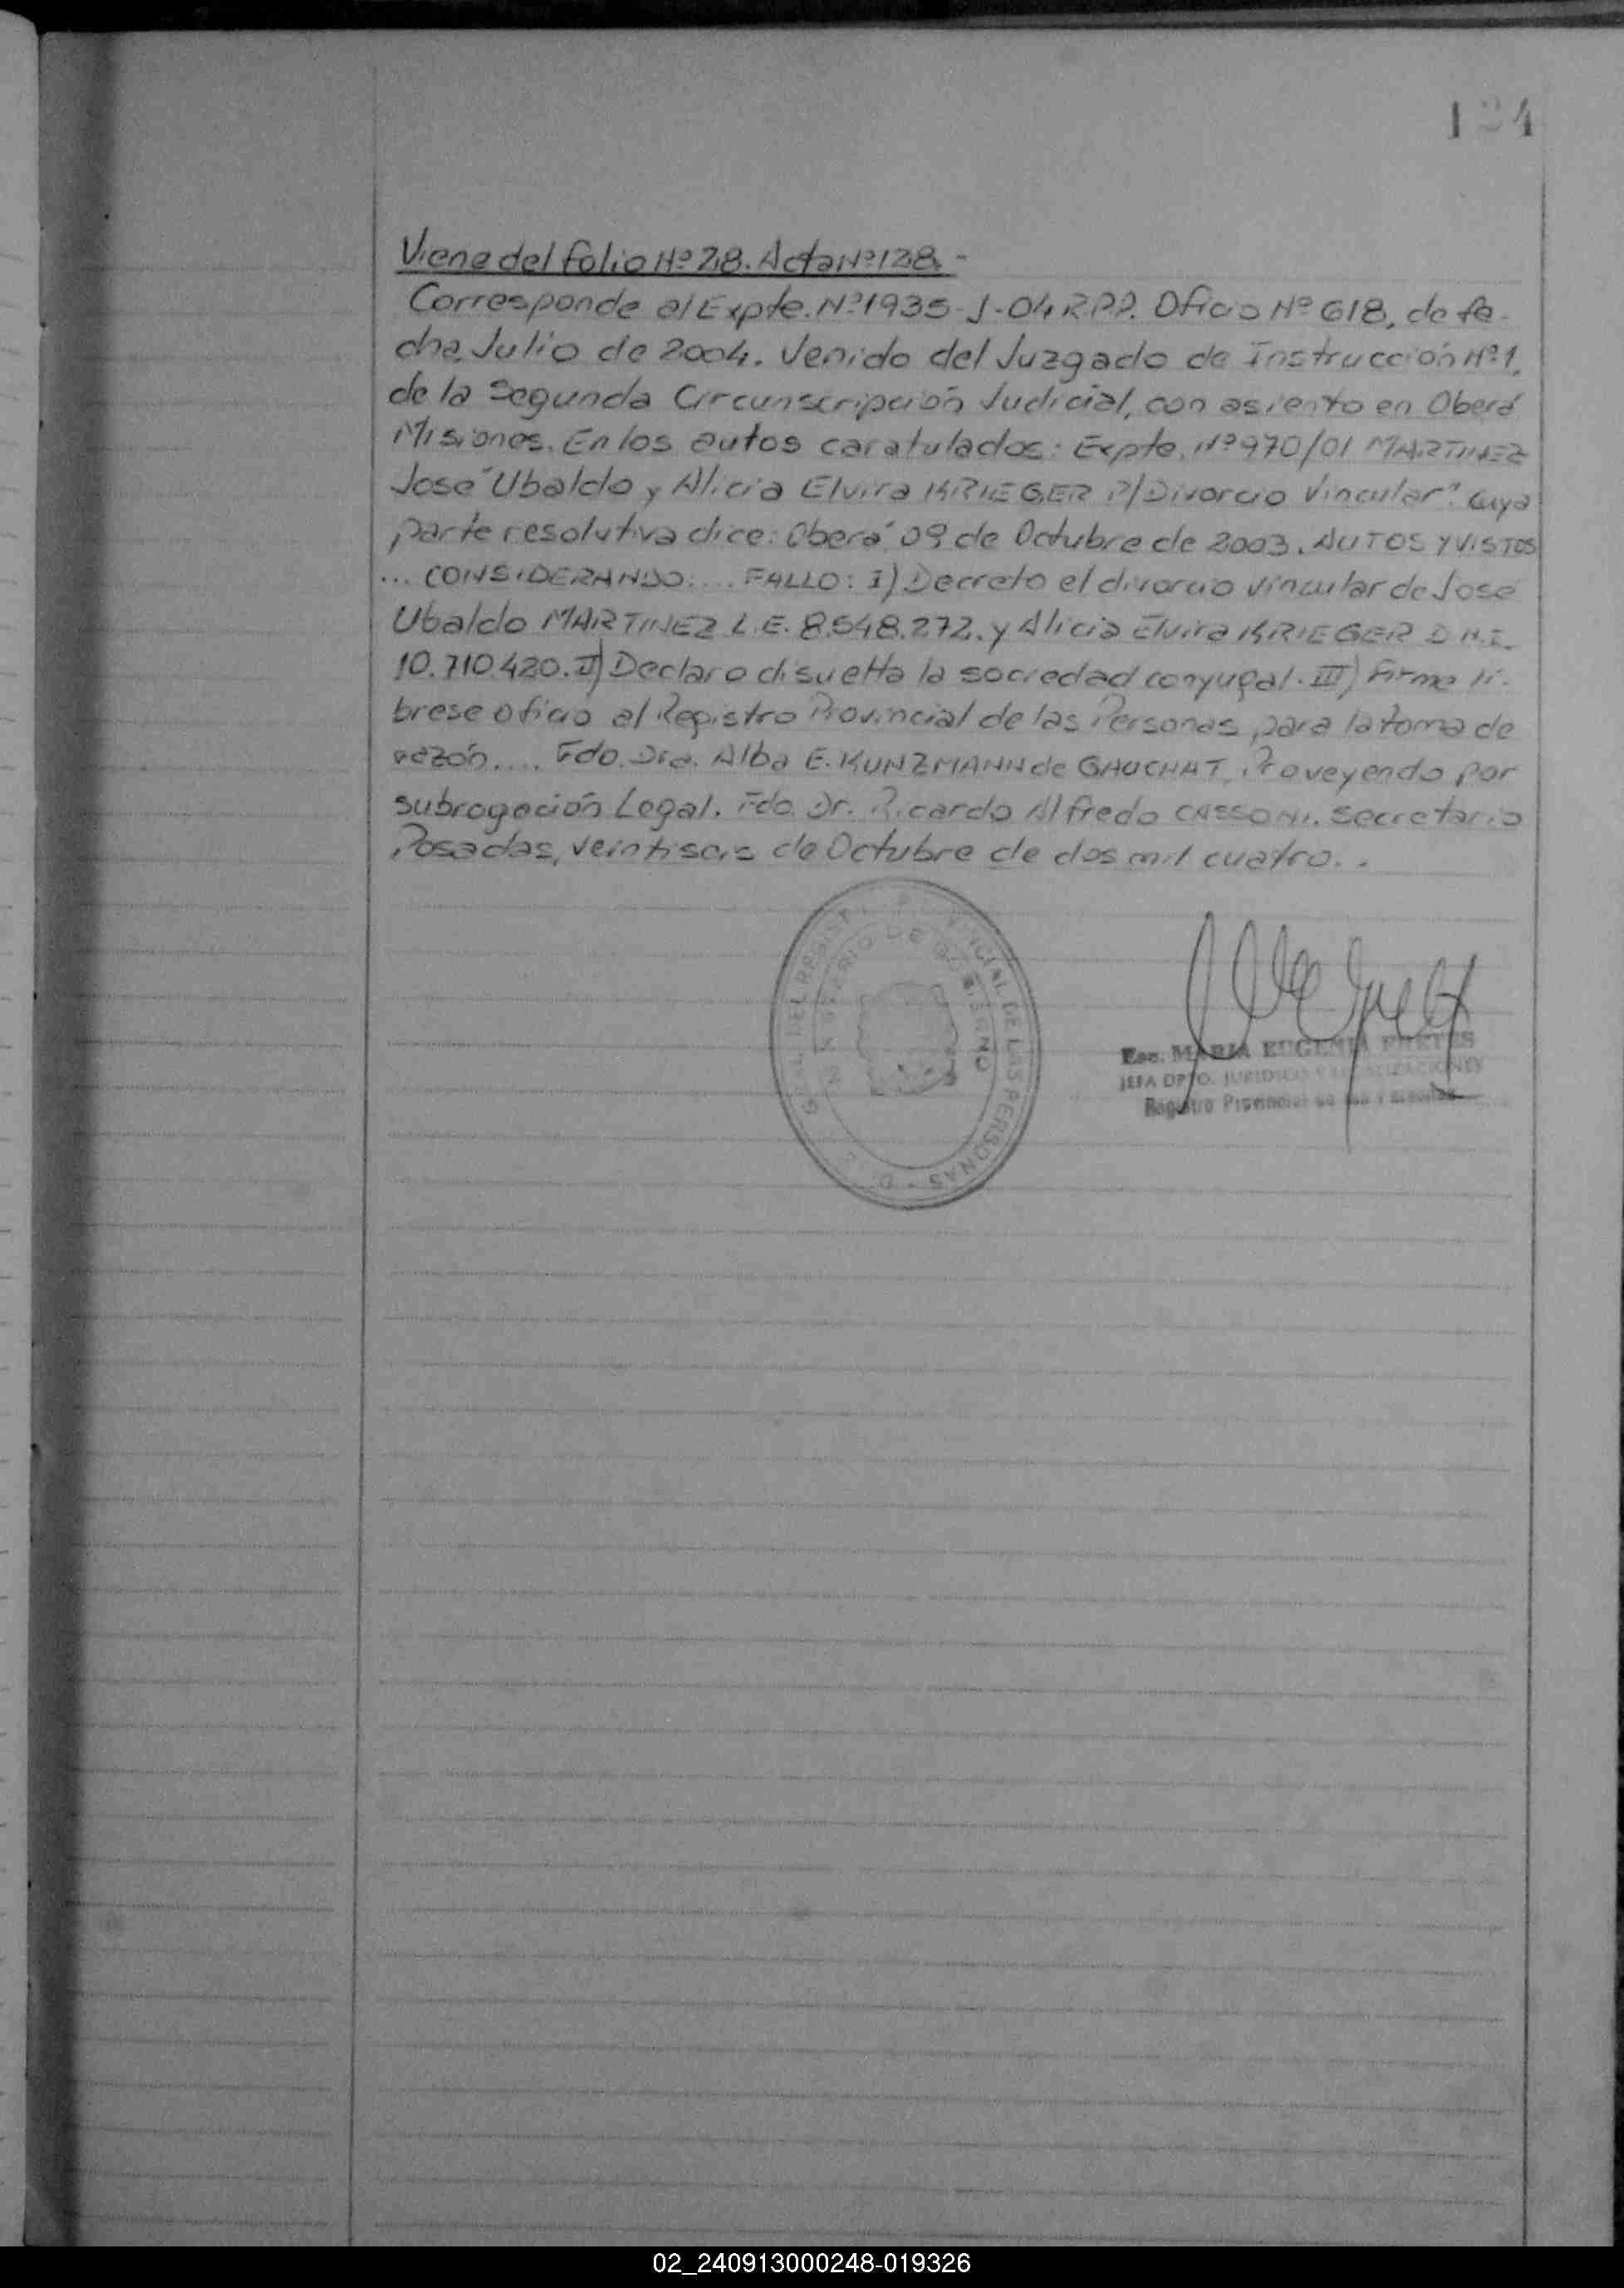 124
Viene del folio Nº 28. Acta Nº 128. -
Corresponde al Expte. Nº 1935-J-04 R.P.P. Oficio Nº 618, de fe-
cha, Julio de 2004. Venido del Juzgado de Instrucción Nº 1,
de la Segunda Circunscripción Judicial, con asiento en Oberá
Misiones. En los autos caratulados: Expte. Nº 970/01 MARTINEZ
José Ubaldo y Alicia Elvira KRIEGER P/Divorcio Vincular" cuya
parte resolutiva dice: Oberá 09 de Octubre de 2003. AUTOS Y VISTOS
... CONSIDERANDO:... FALLO: I) Decreto el divorcio vincular de José
Ubaldo MARTINEZ L.E. 8.548.272. y Alicia Elvira KRIEGER D.N.I.
10.710.420. II) Declaro disuelta la sociedad conyugal. III) Firme lí-
brese oficio al Registro Provincial de las Personas, para la toma de
razón.... Fdo. Dra. Alba E. KUNZMANN de GAUCHAT, Proveyendo por
subrogación Legal. Fdo. Dr. Ricardo Alfredo CASSONI. Secretario
Posadas, veintiseis de Octubre de dos mil cuatro. .
GRAL. DEL REGISTRO PROVINCIAL DE LAS PERSONAS - D
MINISTERIO DE GOBIERNO
Esc. MARIA EUGENIA PRETES
JEFA DPTO. JURIDICO Y LEGALIZACIONES
Registro Provincial de las Personas
02_240913000248-019326